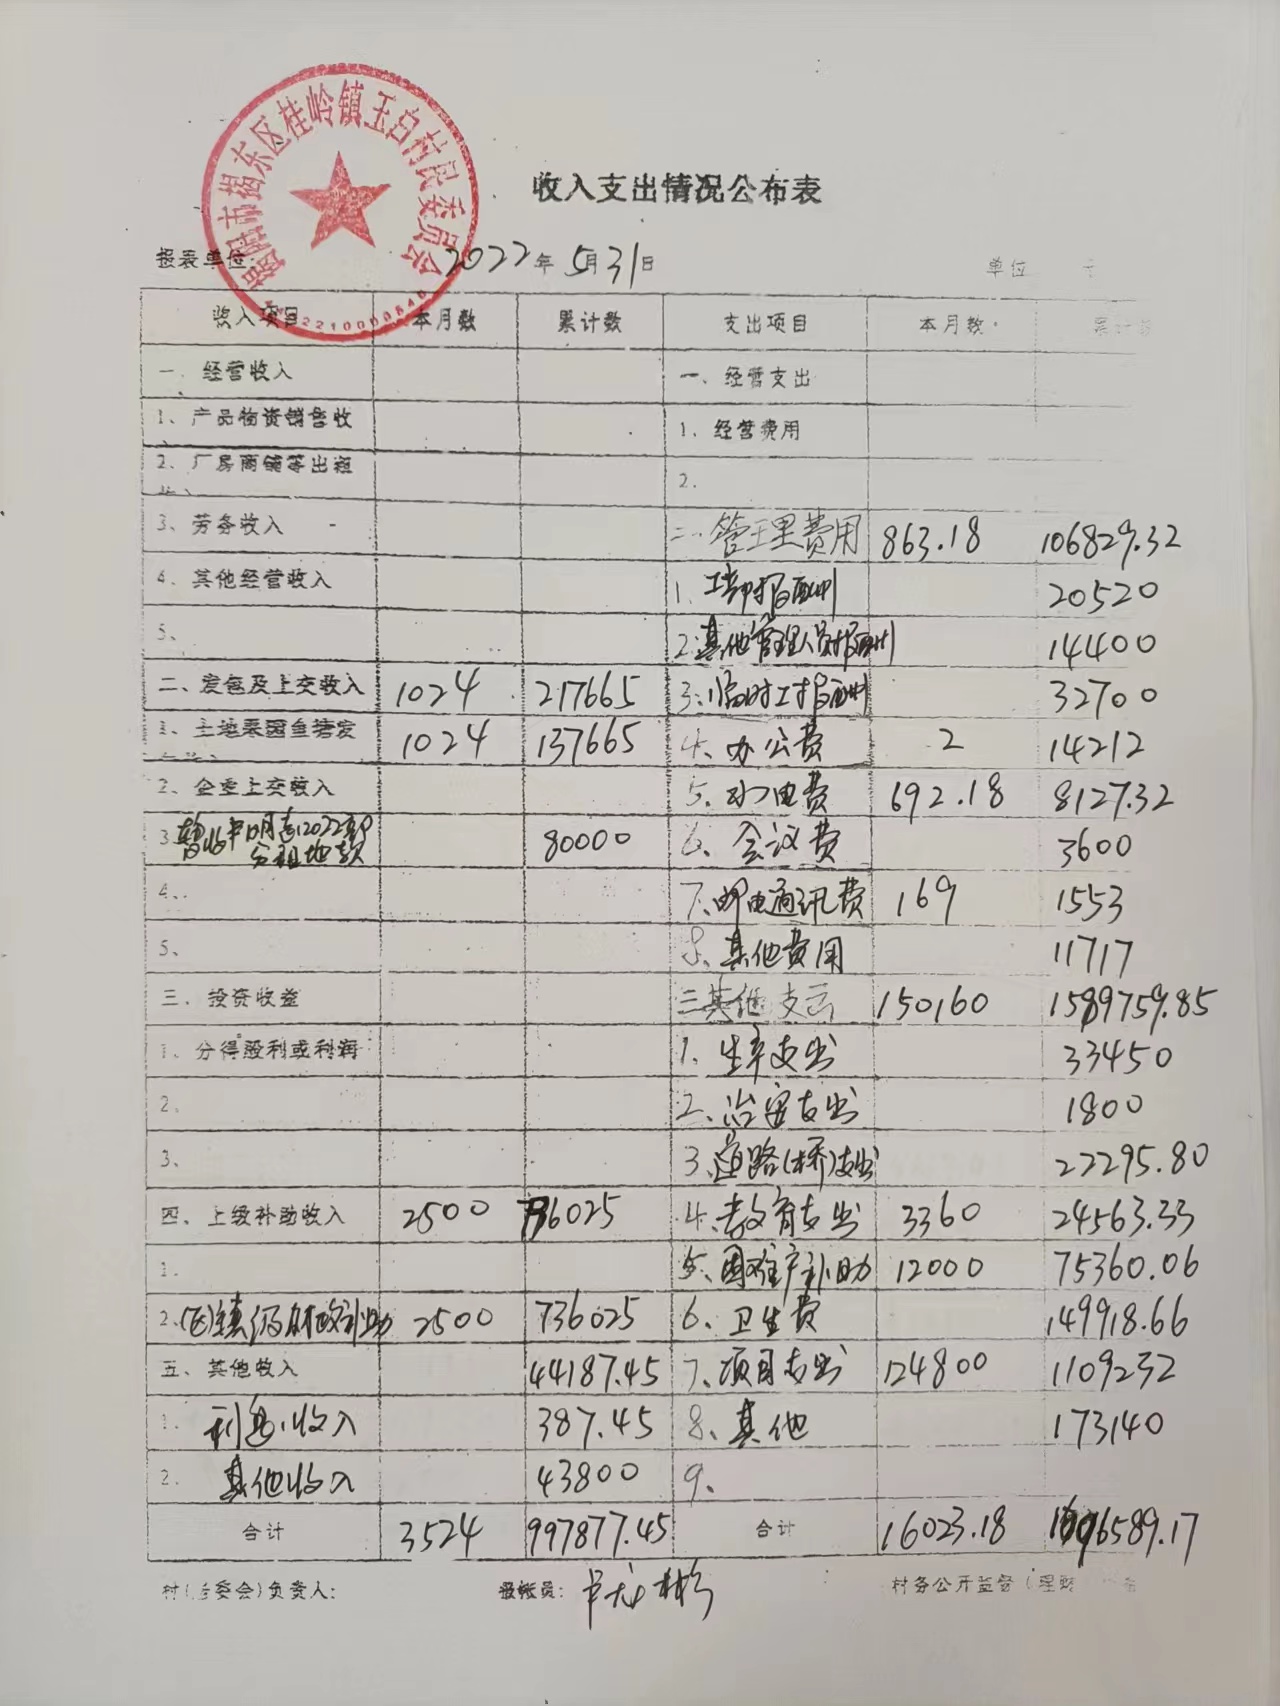 揭阳市揭东区桂岭镇玉白村民委员会
收入支出情况公布表
报表单位: 2022年5月31日 单位
收入项目 本月数 累计数 支出项目 本月数 累计数
一 经营收入 一、经营支出
1、产品物资销售收 1、经营费用
2、厂房商铺等出租 2.
3、劳务收入 二、管理费用 863.18 106829.32
4、其他经营收入 1、干部报酬 20520
5、 2.其他管理人员报酬 14400
二、发包及上交收入 1024 217665 3、临时工报酬 32700
1、土地果园鱼塘发 1024 137665 4、办公费 2 14212
2、企业上交收入 5、水电费 692.18 8127.32
3 80000 6、会议费 3600
4、 7、邮电通讯费 169 1553
5、 8、其他费用 11717
三、投资收益 三其他支出 150160 1589759.85
1、分得股利或利润 1、生产支出 33450
2、 2、治安支出 1800
3、 3、道路(桥)支出 22295.80
四、上级补助收入 2500 736025 4、教育支出 3360 24563.33
1. 5、困难户补助 12000 75360.06
2、镇级财政补助 2500 736025 6、卫生费 149918.66
五、其他收入 44187.45 7、项目支出 124800 1109232
1. 利息收入 387.45 8、其他 173140
2. 其他收入 43800 9、
合计 3524 997877.45 合计 16023.18 1696589.17
村(居委会)负责人: 报帐员: 村务公开监督(理财